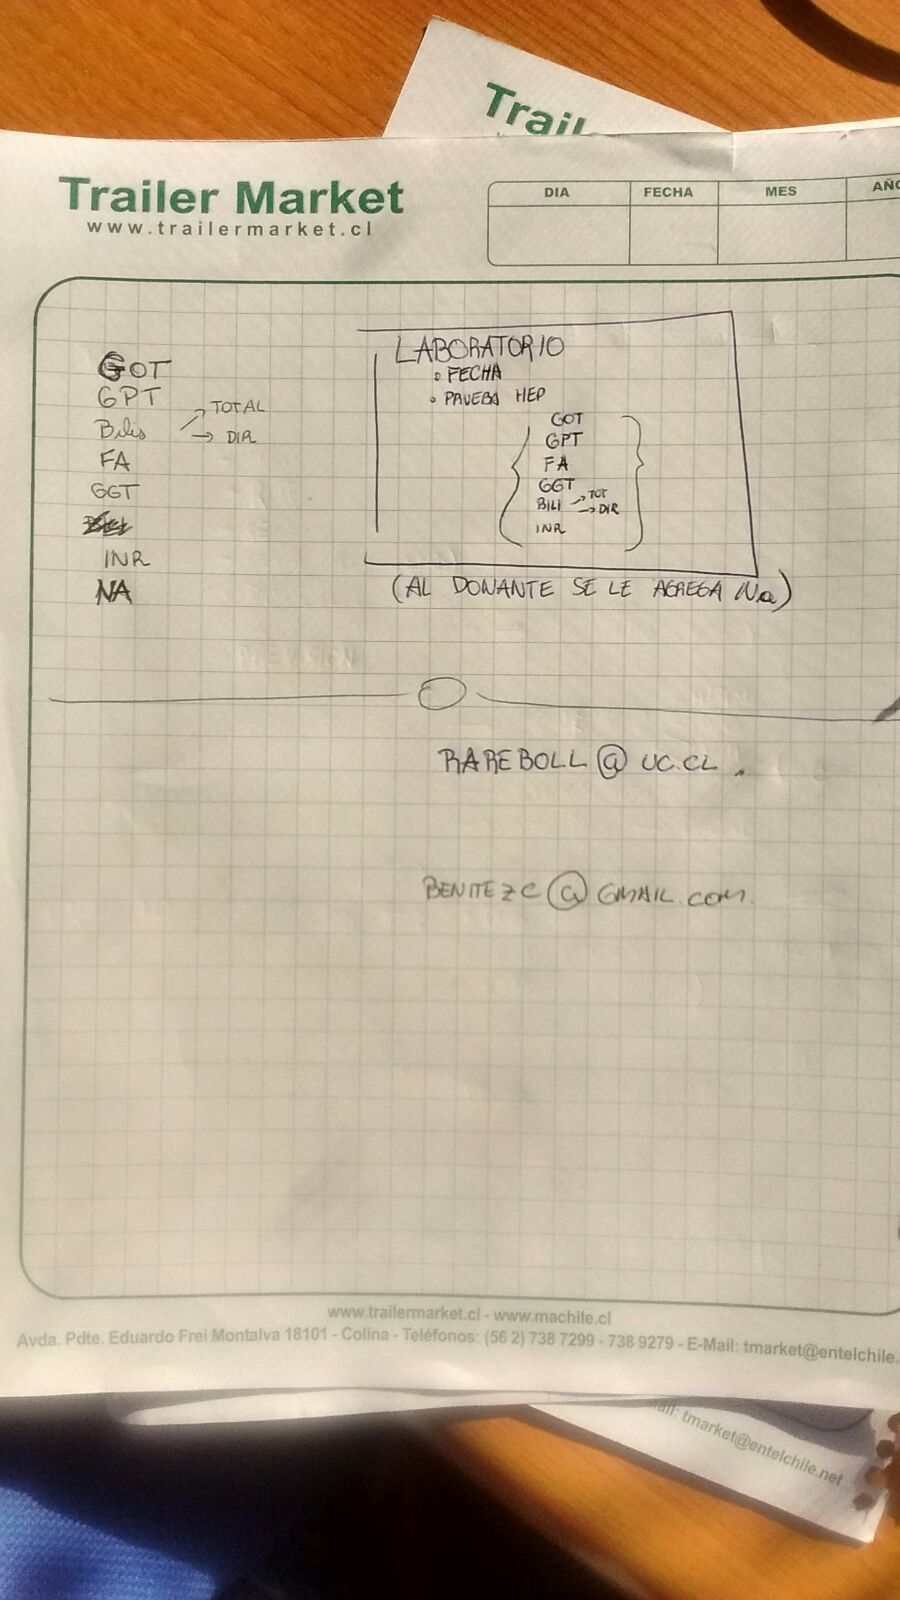 Trail
Trailer Market
www.trailermarket.cl
DIA FECHA MES AÑO
GOT
GPT
Bilis → TOTAL
→ DIR
FA
GGT
INR
NA
LABORATORIO
• FECHA
• PRUEBA HEP
GOT
GPT
FA
GGT
BILI → TOT
→ DIR
INR
(AL DONANTE SE LE AGREGA Na)
RAREBOLL@UC.CL.
BENITEZC@GMAIL.COM.
www.trailermarket.cl - www.machile.cl
Avda. Pdte. Eduardo Frei Montalva 18101 - Colina - Teléfonos: (56 2) 738 7299 - 738 9279 - E-Mail: tmarket@entelchile.
ail: tmarket@entelchile.net